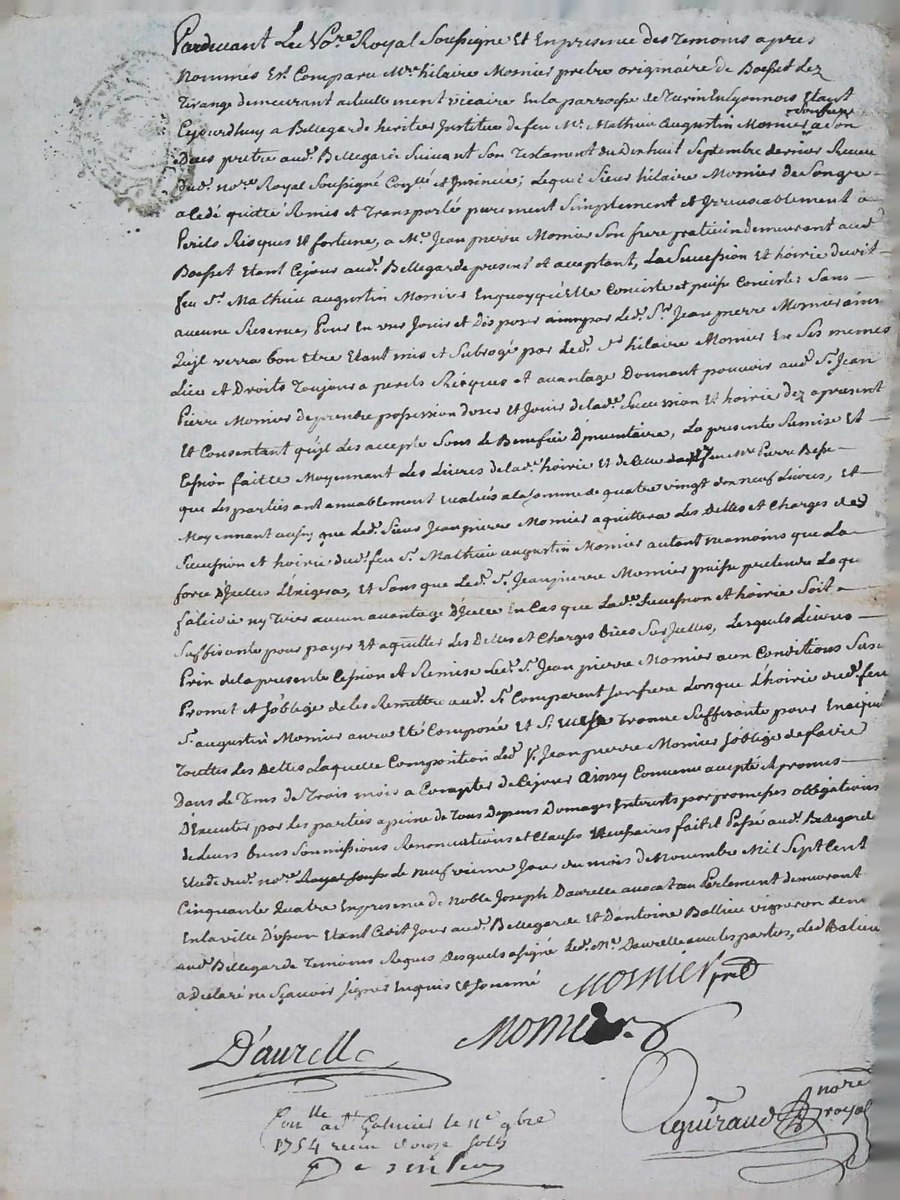 Pardevant Le No.re Royal Soussigné Et En presence des Temoins apres
nommés Est Comparu M.re hilaire Mosnier pretre originaire de Boesset Lez
Tirange demeurant actuellement vicaire En la parroche de En Lyonnois Etant
Cejourdhuy a Bellegarde heritier Institué de feu M.e Mathieu Augustin Mosnier a Son
Deces pretre aud. Bellegarde Suivant Son Testament du Dixhuit Septembre dernier Receu
dud. no.re Royal Soussigné Con.llé et Insinué; Lequel Sieur hilaire Mosnier de Son gré
a Cedé quitté Remis et Transporté purement Simplement et Irrevocablement a
Perils Risques Et fortune, a M.e Jean pierre Mosnier Son frere praticien demeurant aud.
Boesset Etant Cejour aud. Bellegarde present et acceptant, La Succession Et hoirie dud.
feu S.r Mathieu augustin Mosnier En quoy qu'Elle Conciste et puisse Concister Sans
aucune Reserve, Pour En user Jouir et Disposer par Led. S.r Jean pierre Mosnier ainsi
qu'il verra bon Etre Etant mis et Subrogé par Led. S.r hilaire Mosnier En Ses memes
Lieu et Droits Toujours a perils Risques et avantage Donnant pouvoir aud. S.r Jean
Pierre Mosnier de prendre possession user Et Jouir de lad. Succession Et hoirie dez apresent
Et Consentant qu'il Les accepte Sous Le Benefice D'jnventaire, La presente Remise Et
Cession faitte Moyennant Les Livres de lad. hoirie Et de Celle de feu M.re Pierre
que Les parties ont amiablement Evalués a la Somme de quatre vingt dix neuf Livres, Et
Moyennant aussy que Led. Sieur Jean pierre Mosnier aquittera Les Dettes et Charges des
Succession et hoirie dud. feu S.r Mathieu augustin Mosnier autant neamoins que La
force D'Jcelles L'Exigera, et Sans que Led. S.r Jean pierre Mosnier puisse pretendre La
falcidie ny Tirer aucun avantage D'Jcelle En Cas que Lad. Succession et hoirie Soit
Suffisante pour payer Et aquitter Les Dettes et Charges Dües Sur Jcelles, Lesquels Livres
Prix de la presente Cession et Remise Led. S.r Jean pierre Mosnier aux Conditions Susd.
Promet et S'oblige de les Remettre aud. S.r Comparent Son frere Lorsque L'hoirie dud. feu
S.r augustin Mosnier aura Eté Composée Et Si Elle Se Trouve Suffisante pour
Touttes Les Dettes Laquelle Composition Led. S.r Jean pierre Mosnier S'oblige de faire
Dans Le Tems de Trois mois a Compter de Cejour Ainsy Convenu accepté et promis
D'Executer par les parties a peine de Tous Depens Domages Interets par promesses obligations
de Leurs biens Soumissions Renonciations et Clauses Necessaires fait et Passé aud. Bellegarde
Etude dud. no.re Royal Le neufvieme Jour du mois de Novembre Mil Sept Cent
Cinquante Quatre En presence de noble Joseph Daurelle avocat au Parlement demeurant
En la ville D'usson Etant Cedit Jour aud. Bellegarde Et D'antoine Ballieu vigneron dem.t
aud. Bellegarde Temoins Requis Desquels a signé Led. M.e Daurelle avec les parties, Led. Balieu
a declaré ne Sçavoir Signer Enquis et Sommé
Mosnier pre
Mosnier
D'aurelle
Aguiraud no.re royal
Con.llé a St Galmier le 11e 9bre
1754 reçu douze sols